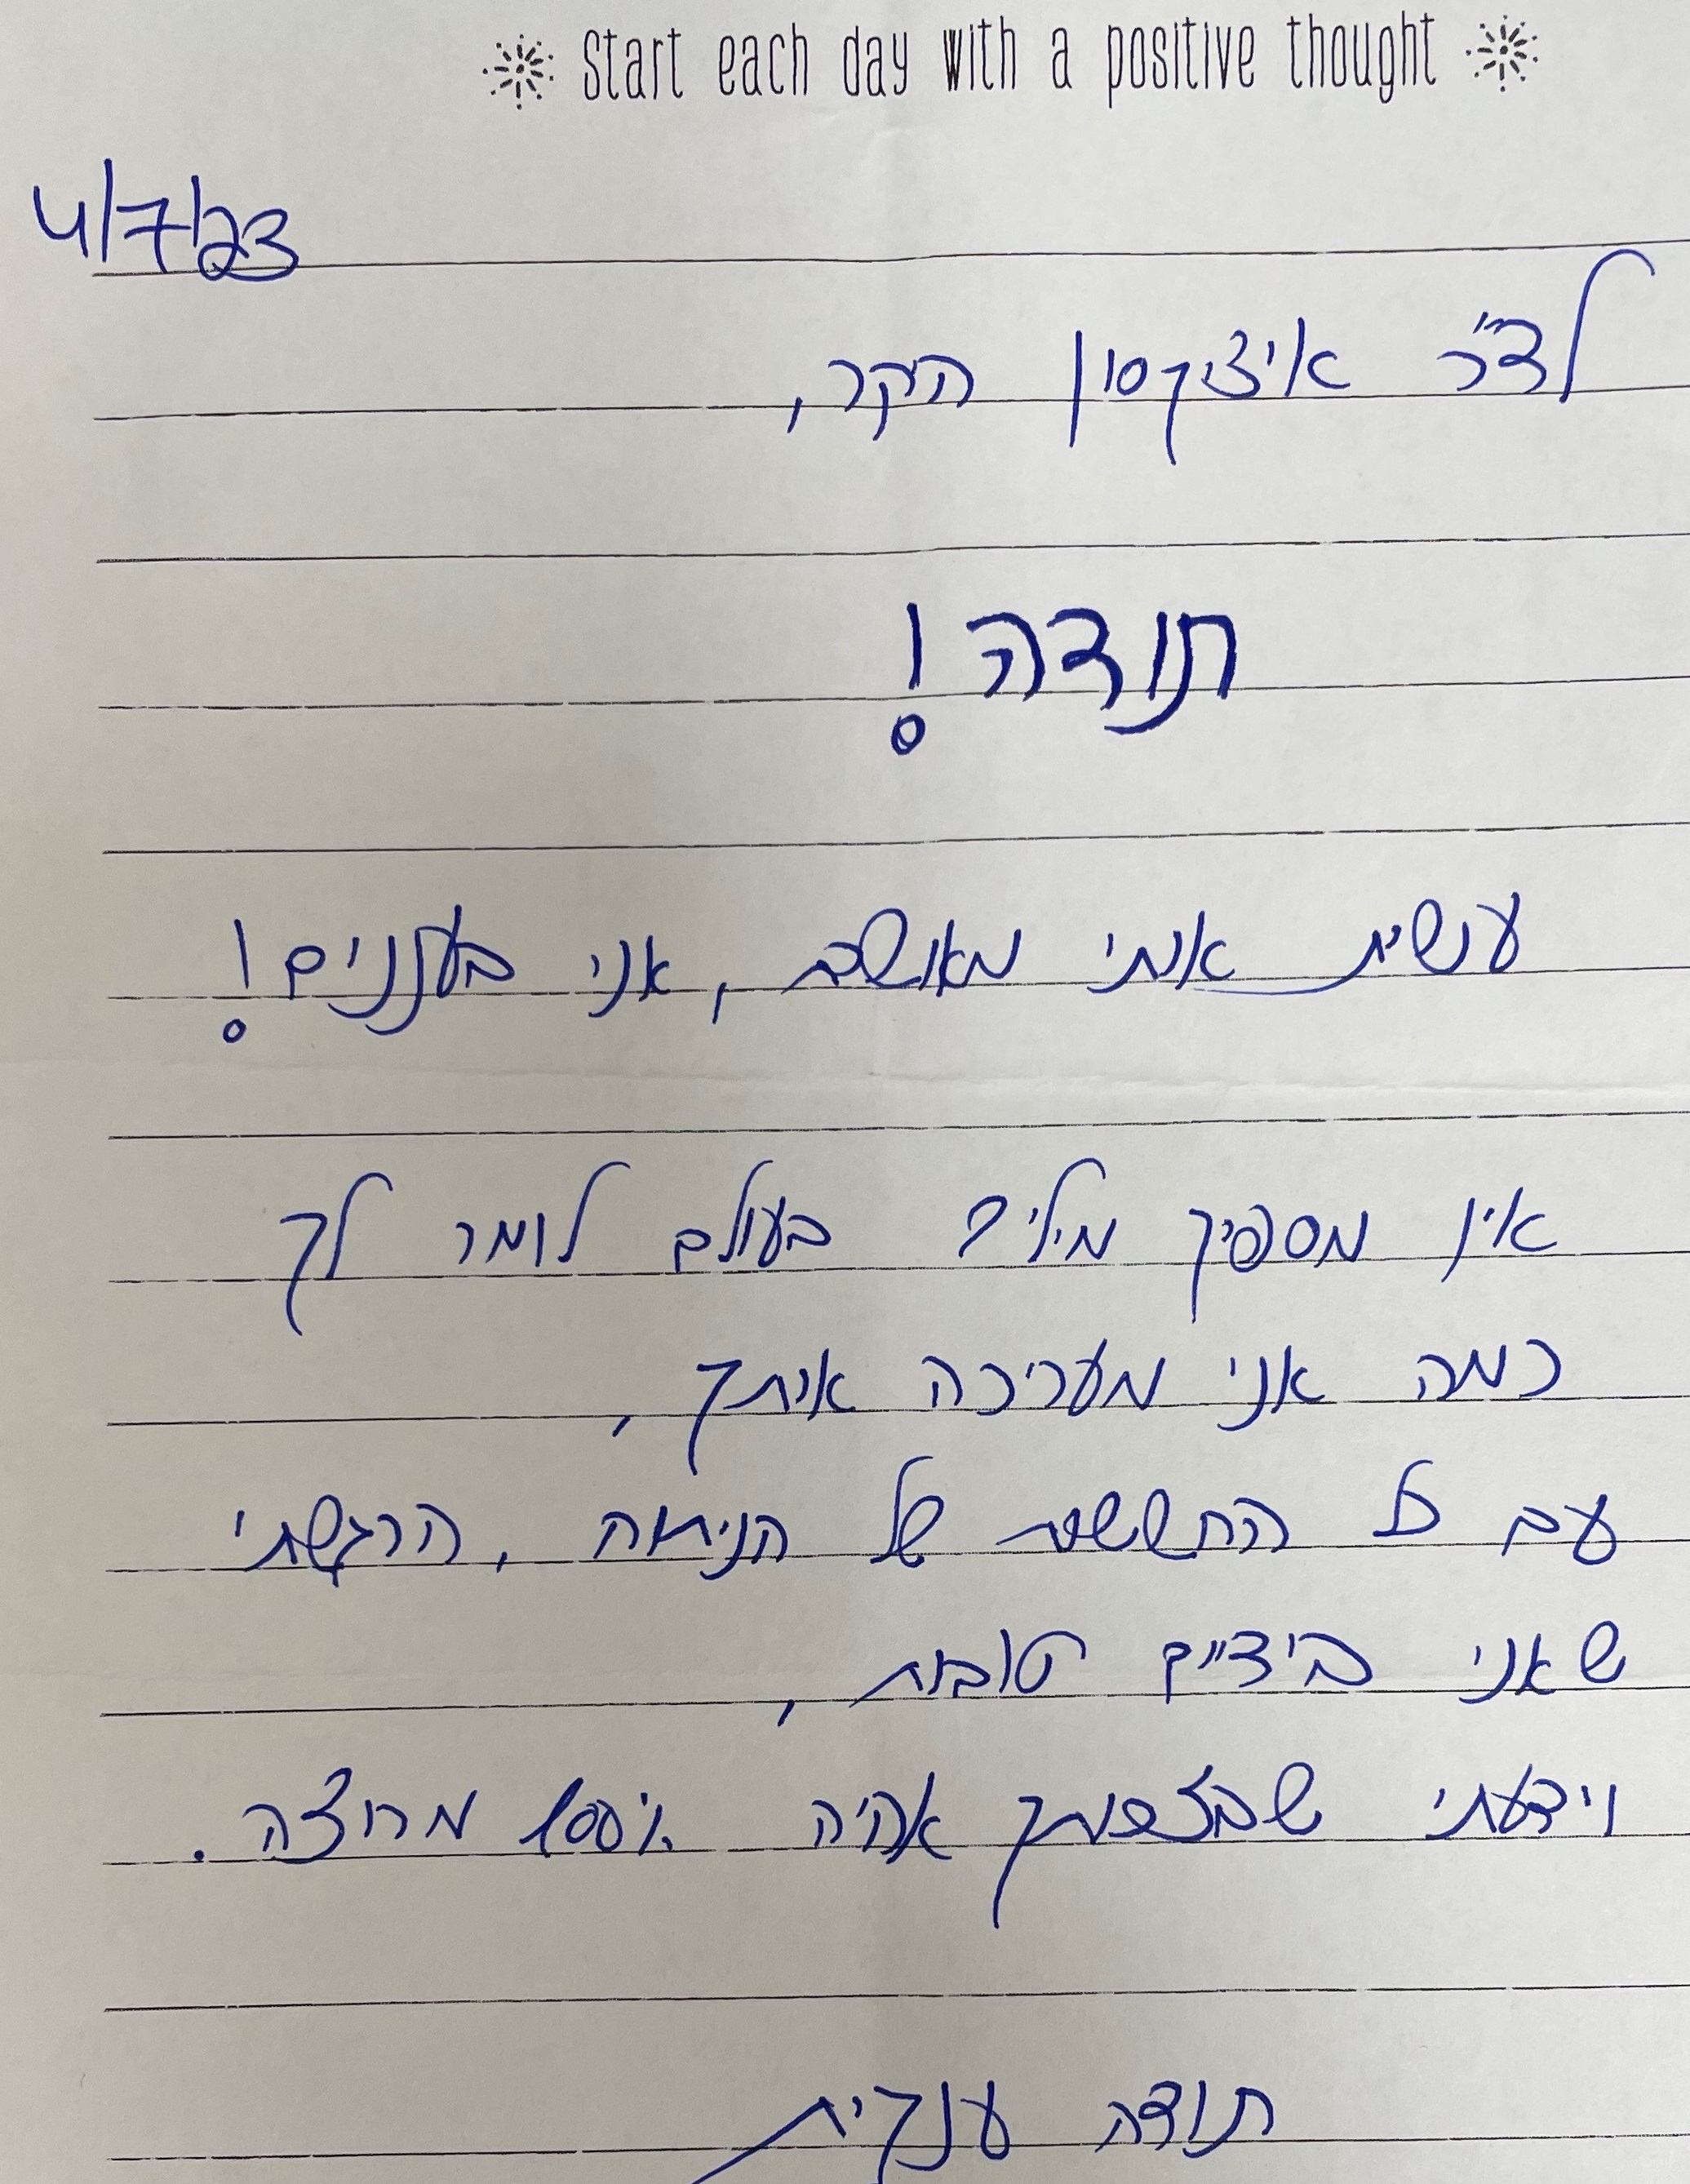 Start each day with a positive thought
4/7/23
לד"ר איציקסון היקר,
תודה!
עושית אותי מאושרת, אני בעננים!
אין מספיק מילים בעולם לומר לך
כמה אני מעריכה אותך,
עם כל החששות של הניתוח, הרגשתי
שאני בידיים טובות,
וידעתי שבזכותך אהיה 100% מרוצה.
תודה ענקית